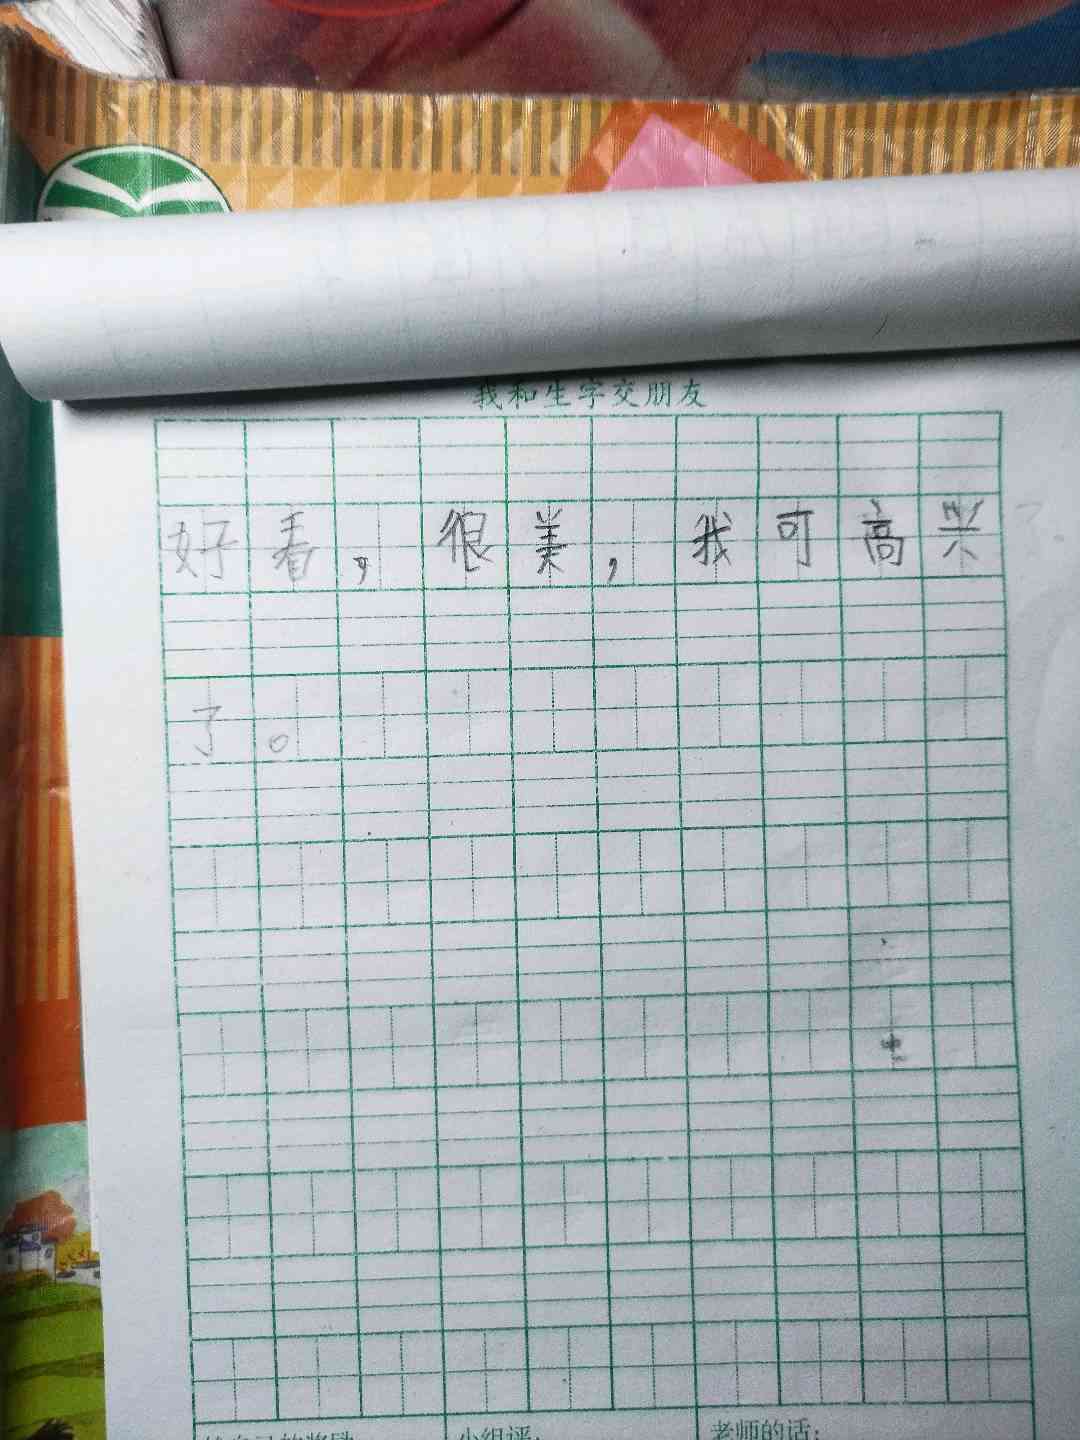 我和生字交朋友
好看，很美，我可高兴
了。
小组评：
老师的话：